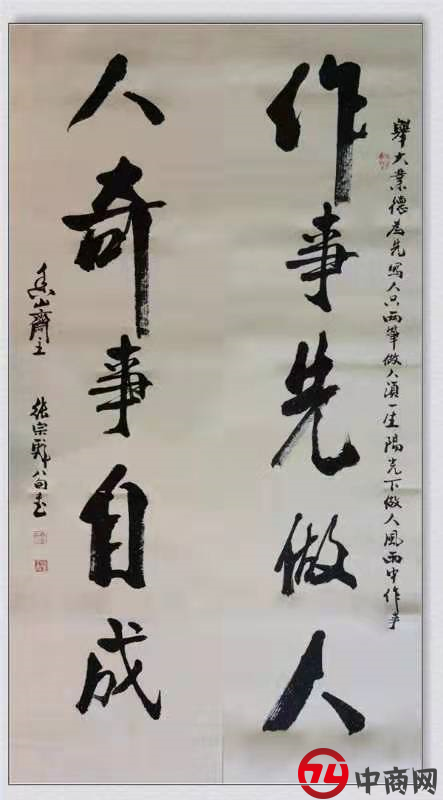 舉大業德為先寫人只兩筆做人須一生陽光下做人風雨中作事
作事先做人
人奇事自成
山齋主
張宗 八旬書
中商网